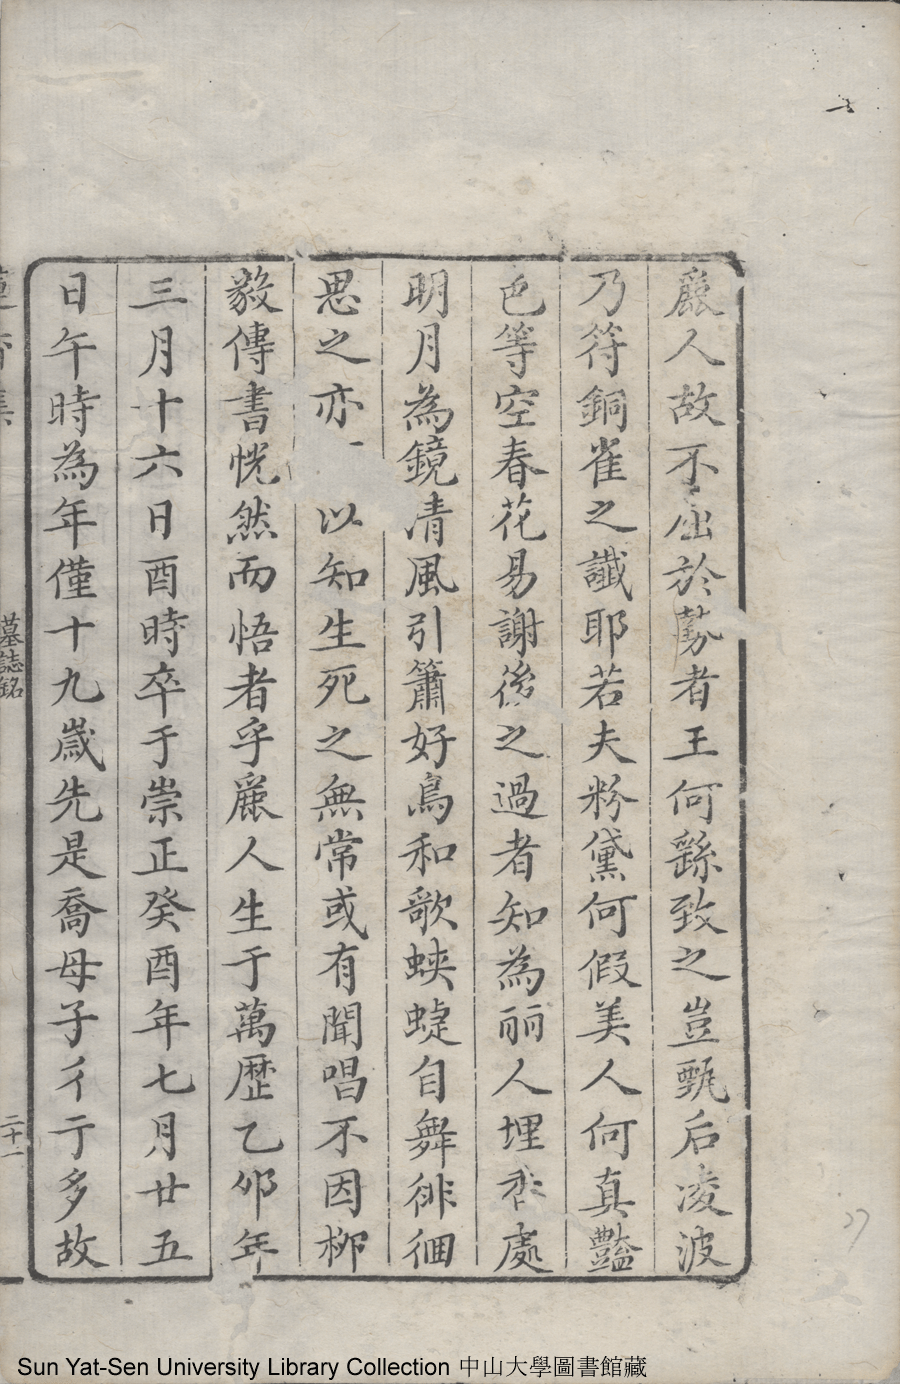 麗人故不出於勢者王何繇致之豈甄后凌波
乃符銅雀之讖耶若夫粉黛何假美人何真豔
色等空春花易謝後之過者知為丽人埋香處
明月為鏡清風引簫好鳥和歌蛺蜨自舞徘徊
思之亦以知生死之無常或有聞唱不因柳
毅傳書恍然而悟者乎麗人生于萬歷乙卯年
三月十六日酉時卒于崇正癸酉年七月廿五
日午時為年僅十九歲先是喬母子彳亍多故
墓誌銘
二十一
27
Sun Yat-Sen University Library Collection 中山大學圖書館藏